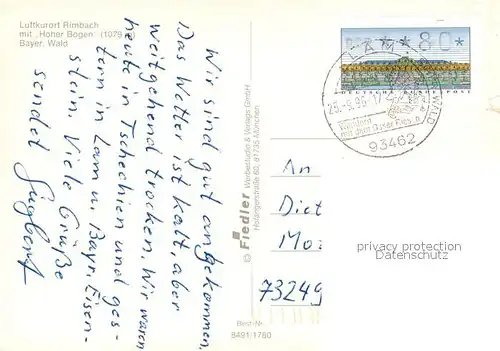 Luftkurort Rimbach
mit "Hoher Bogen" (1079
Bayer. Wald
Wir sind gut angekommen.
Das Wetter ist kalt, aber
weitgehend trocken. Wir waren
heute in Tschechien und ges-
tern in Lam u. Bayr. Eisen-
stein. Viele Grüße
sendet
© Fiedler Werbestudio & Verlags GmbH
81735 München
Best-Nr.
8491/1760
80*
DEUTSCHE BUNDESPOST
LAM
WALD
93462
An
Diet
Mo
73249
privacy protection
Datenschutz